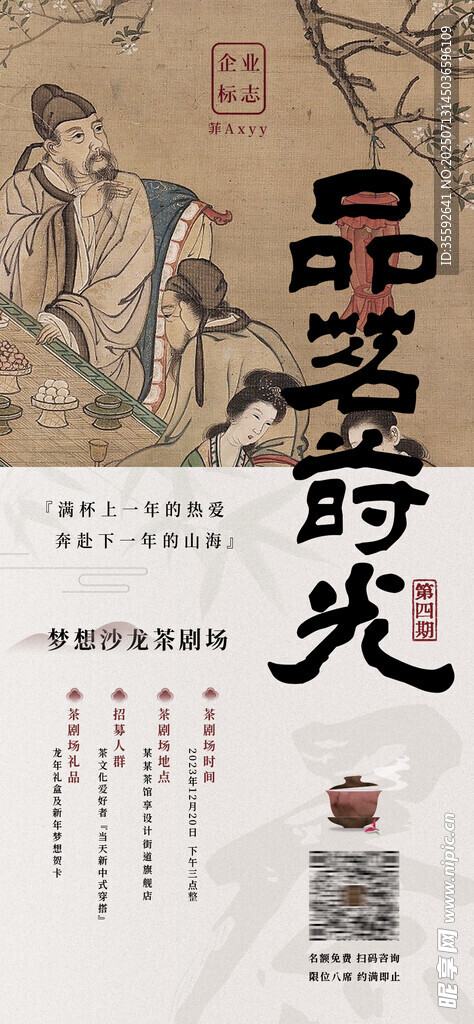 企业
标志
菲Axyy
品茗时光
第四期
『满杯上一年的热爱
奔赴下一年的山海』
梦想沙龙茶剧场
茶剧场时间
2023年12月20日 下午三点整
茶剧场地点
某某茶馆享设计街道旗舰店
招募人群
茶文化爱好者『当天新中式穿搭』
茶剧场礼品
龙年礼盒及新年梦想贺卡
名额免费 扫码咨询
限位八席 约满即止
ID:35592641 NO:20250713145036596109
昵享网 www.nipic.cn
茶